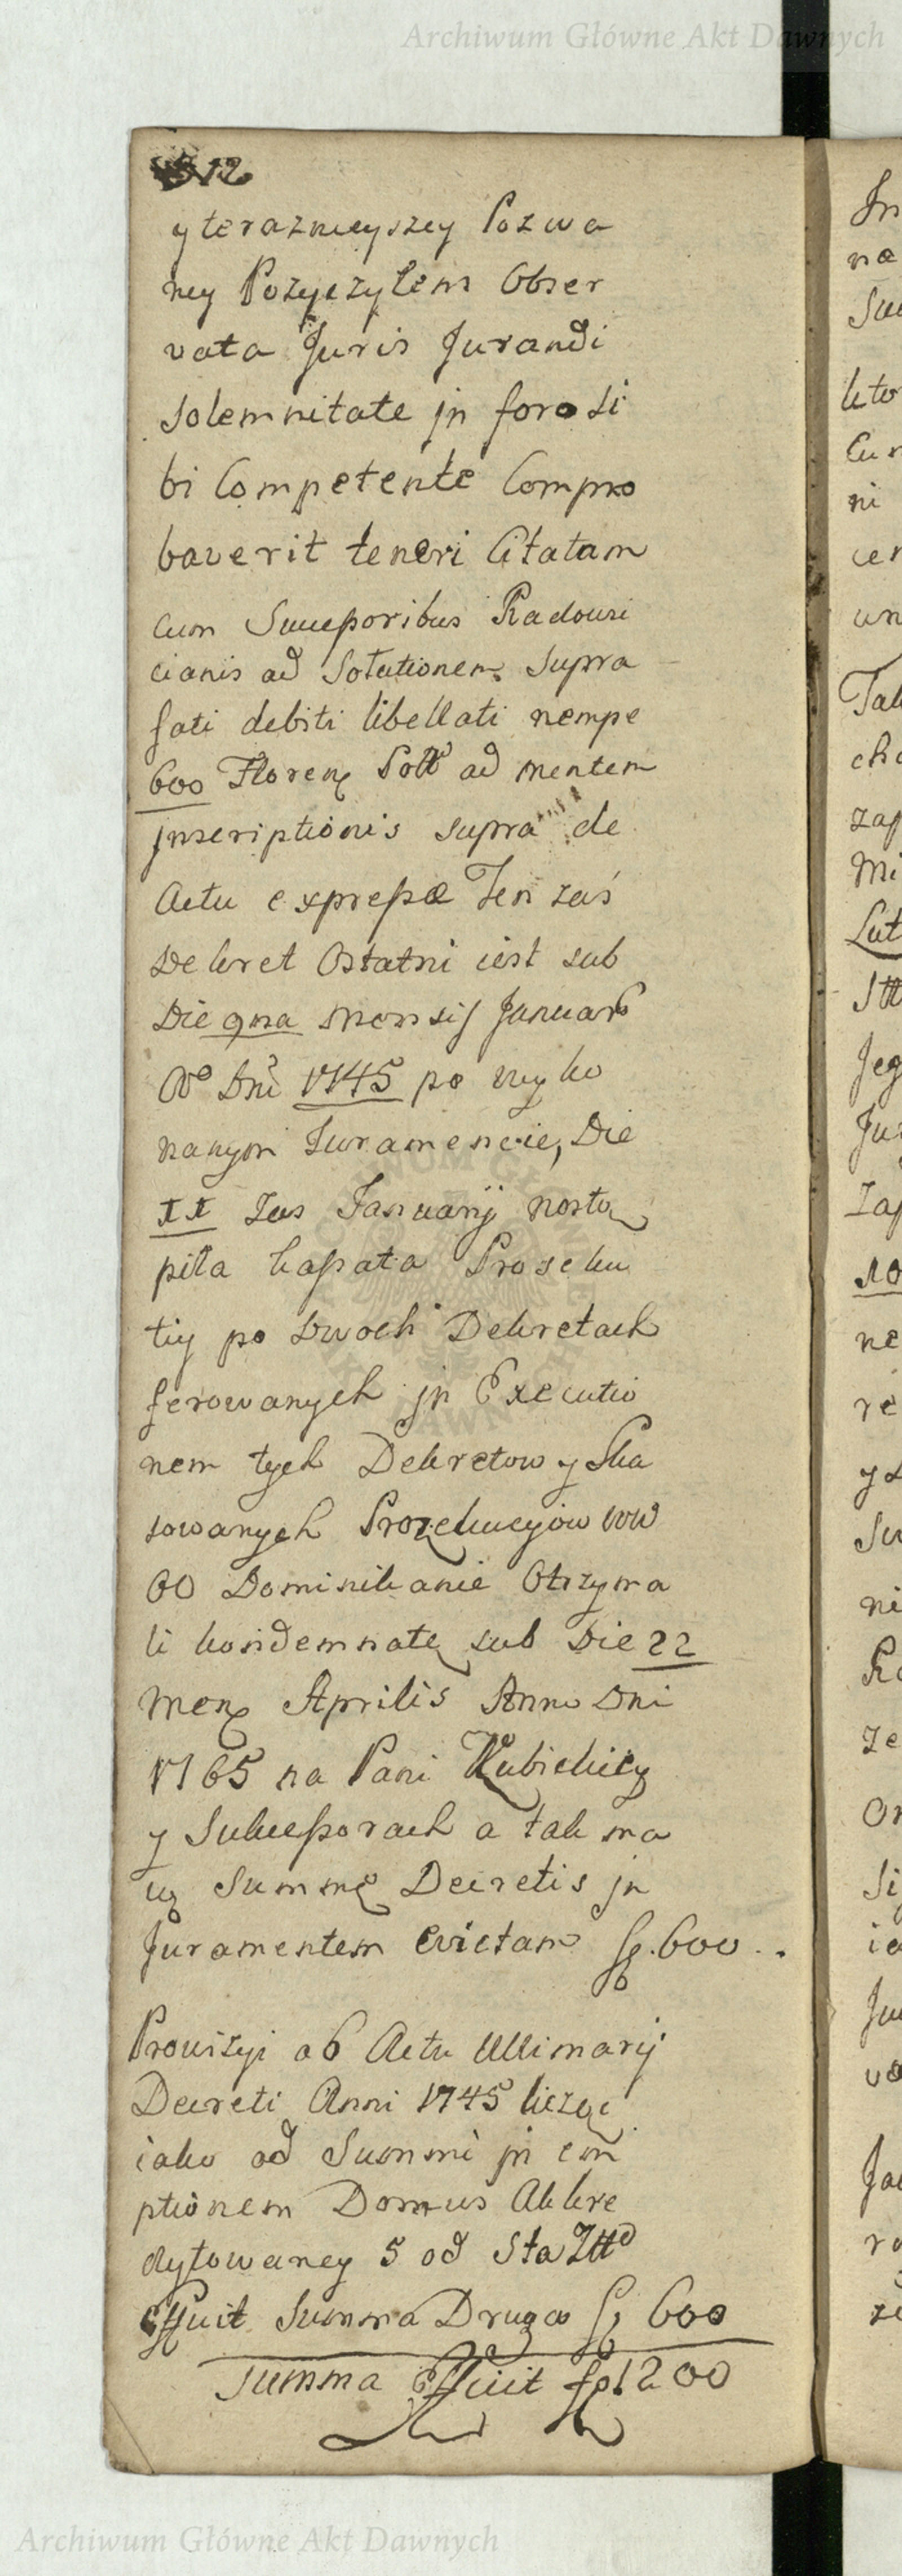 Archiwum Główne Akt Dawnych
512
y teraznieyszey Pozwa
ney Pozyczylem Obser
vata Juris Jurandi
Solemnitate jn foro si
bi Competente Compro
baverit teneri Citatam
cum Succeßoribus Radouri
cianis ad Solutionem supra
fati debiti libellati nempe
600 Floren Poll ad mentem
jnscriptionis supra de
Actu expreßæ Ten zaś
Dekret Ostatni iest sub
Die 9na Mensis Januar
Ao Dni 1745 po wyko
nanym Juramencie, Die
zas Januarij nastą
piła kaßata Proseku
tiy po dwoch Dekretach
ferowanych jn Executio
nem tych Dekretow y Ska
sowanych Prozekucyiow WW
OO Dominikanie Otrzyma
li kondemnatę sub Die 22
Men Aprilis Anno Dni
1765 na Pani Kubickiey
y Sukceßorach a tak ma
ią Summę Decretis jn
Juramentem Evictam fl. 600
Prowizyi ab Actu Ultimarij
Decreti Anni 1745 licząc
iako od Summi jn em
ptionem Domus Akkre
dytowaney 5 od Sta
Effluit Summa Druga fl 600
Summa Effluit fl 1200
Archiwum Główne Akt Dawnych